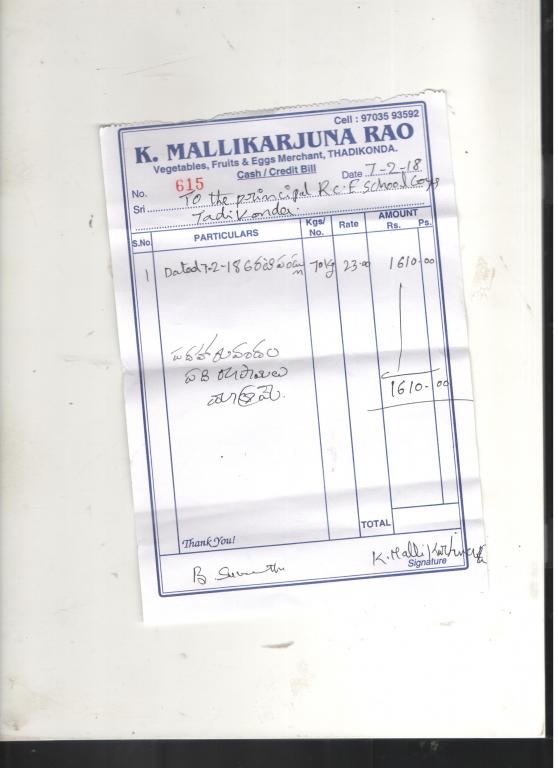 Cell : 97035 93592
K. MALLIKARJUNA RAO
Vegetables, Fruits & Eggs Merchant, THADIKONDA.
Cash / Credit Bill
No. 615 Date 7-2-18
Sri To the principal R.C.E School Coys
Tadikonda
S.No. PARTICULARS Kgs/ No. Rate AMOUNT Rs. Ps.
1 Dated 7-2-18 70kg 23.00 1610.00
పదహారువందల
పది రూపాయలు
మాత్రమే.
1610-00
TOTAL
Thank You!
B
K. Mallikarjuna
Signature